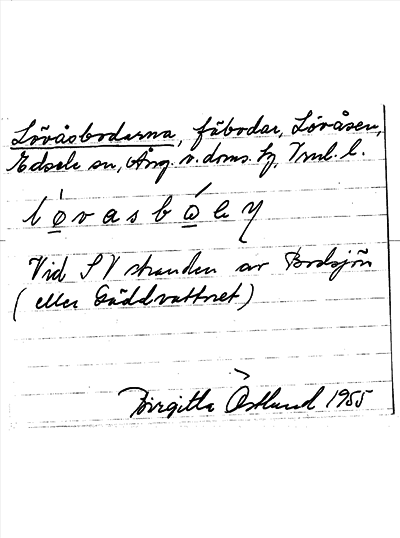 Lövåsbodarna, fäbodar, Lövåsen,
Edsele sn, Ång. v. doms. hg, Vnl. l.
l ø v a s b ω l e y
Vid SV stranden av Bodsjön
(eller Gäddvattnet)
Birgitta Östlund 1955